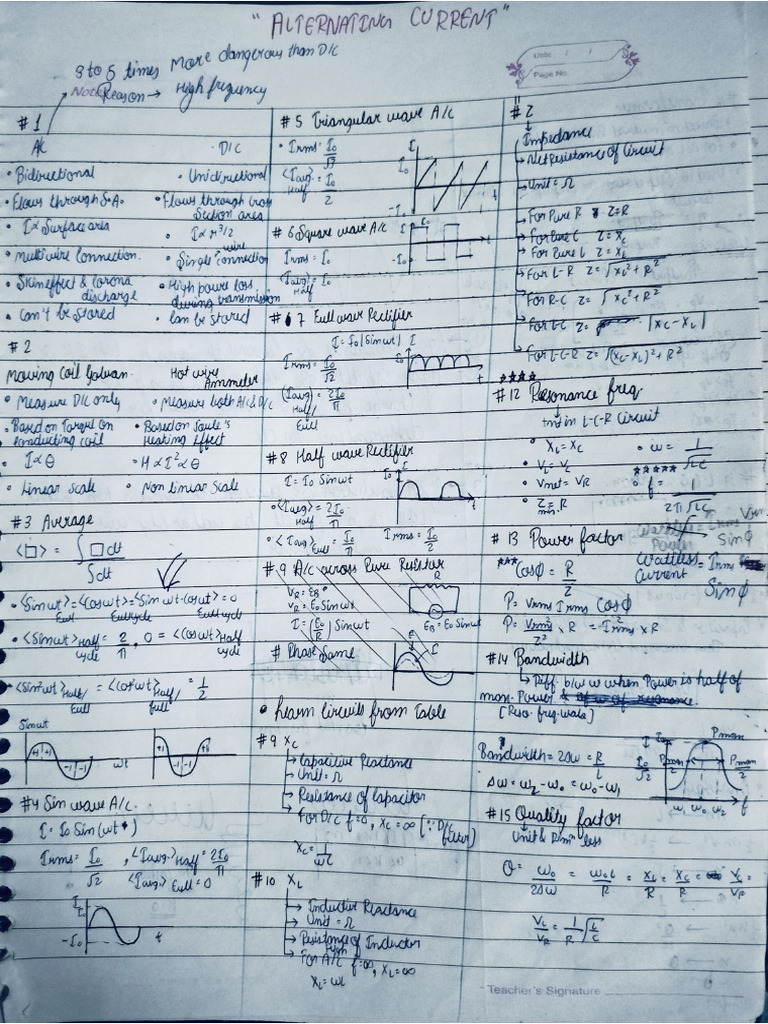 "ALTERNATING CURRENT"
3 to 5 times More dangerous than D/C
Note
Reason → High frequency
Date / /
Page No.
#1
A/C · D/C
• Bidirectional • Unidirectional
• Flows through S.A. • Flows through cross Section area
• I ∝ Surface area • I ∝ r^3/2
• Multiwire connection. • Single wire connection
• Skin effect & corona discharge • High power loss during transmission
• Can't be stored • Can be stored
#2
Moving coil Galvan. Hot wire Ammeter
• Measure D/C only • Measure both A/C & D/C
• Based on Torque on conducting coil • Based on Joule's Heating effect
• I ∝ θ • H ∝ I² ∝ θ
• Linear Scale • Non linear Scale
#3 Average
<□> = ∫□dt / ∫dt
• <Sinωt> Full = <Cosωt> Full cycle = <Sinωt·Cosωt> Full cycle = 0
• <Sinωt> Half cycle = 2/π, 0 = <Cosωt> Half cycle
• <Sin²ωt> Half/Full = <Cos²ωt> Half/full = 1/2
Sinωt
+1 +1 -1 -1 ωt
+1 -1 -1 +1
#4 Sin wave A/C.
I = I₀ Sin(ωt
Irms = I₀/√2, <Iavg.> Half = 2I₀/π
<Iavg.> Full = 0
I I₀ -I₀ t
#5 Triangular wave A/C
• Irms = I₀/√3
<Iavg> Half = I₀/2
I I₀ -I₀ t
#6 Square wave A/C
Irms = I₀
<Iavg> Half = I₀
I I₀ -I₀ t
#7 Full wave Rectifier
I = I₀|Sinωt|
Irms = I₀/√2
<Iavg> Half/Full = 2I₀/π
I I₀ t
#8 Half wave Rectifier
I = I₀ Sinωt
• <Iavg> Half = 2I₀/π
• <Iavg> Full = I₀/π Irms = I₀/2
I I₀ t
#9 A/C across Pure Resistor
V_R = E_B
V_R = E₀Sinωt
I = (E₀/R) Sinωt
R
E_B = E₀Sinωt
# Phase Same
E I
• Learn circuits from Table
#9 Xc
→ Capacitive Reactance
→ Unit = Ω
→ Resistance of Capacitor
→ For D/C f=0, Xc = ∞ [∵ D/C
Xc = 1/ωC
#10 X_L
→ Inductive Reactance
→ Unit = Ω
→ Resistance of Inductor
→ For High A/C f=∞, X_L = ∞
X_L = ωL
#2
Impedance
→ Net Resistance of Circuit
→ Unit = Ω
→ For Pure R Z = R
→ For Pure C Z = Xc
→ For Pure L Z = X_L
→ For L-R Z = √X_L² + R²
→ For R-C Z = √Xc² + R²
→ For L-C Z = |Xc - X_L|
→ For L-C-R Z = √(Xc - X_L)² + R²
★★★★
#12 Resonance freq.
→ in L-C-R Circuit
• X_L = Xc • ω = 1/√LC
• V_L = Vc ★★★★★
• Vnet = V_R • f = 1/2π√LC
• Zmin. = R
#13 Power factor
*** Cosϕ = R/Z Wattless Current = Irms Sinϕ
P = Vrms Irms Cosϕ
P = Vrms²/Z² × R = I²rms × R
#14 Bandwidth
→ Diff. b/w ω when Power is half of
max. Power
[Reso. freq. wala]
Bandwidth = 2Δω = R/L
Δω = ω₂ - ω₀ = ω₀ - ω₁
I Imax Pmax
I₀/√2 Pmax/2 Pmax/2
ω₁ ω₀ ω₂ f
#15 Quality factor
→ Unit & Dimⁿ less
Q = ω₀/2Δω = ω₀L/R = X_L/R = Xc/R = V_L/V_R
V_L/V_R = 1/R √L/C
Teacher's Signature